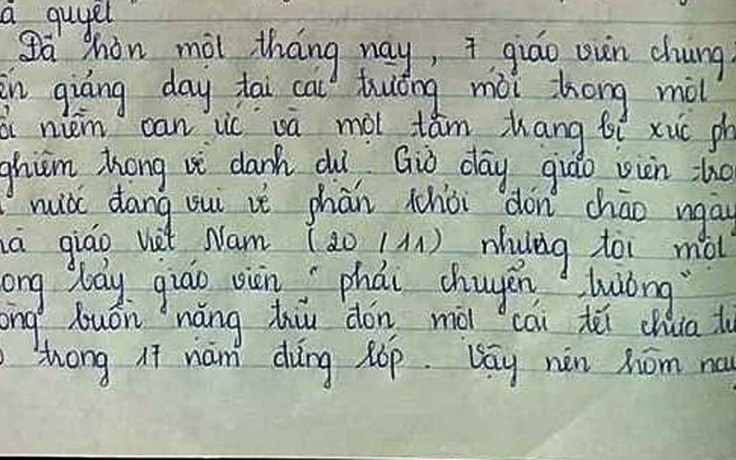 ả quyết
Đã hơn một tháng nay, 7 giáo viên chúng
ến giảng dạy tại các trường mới trong một
ỗi niềm oan ức và một tâm trạng bị xúc ph
ghiêm trọng về danh dự. Giờ đây giáo viên tro
nước đang vui vẻ phấn khởi đón chào ngày
hà giáo Việt Nam (20/11) nhưng tôi một
ong bảy giáo viên "phải chuyển trường"
òng buồn nặng trĩu đón một cái tết chưa từ
trong 17 năm đứng lớp. Vậy nên hôm nay